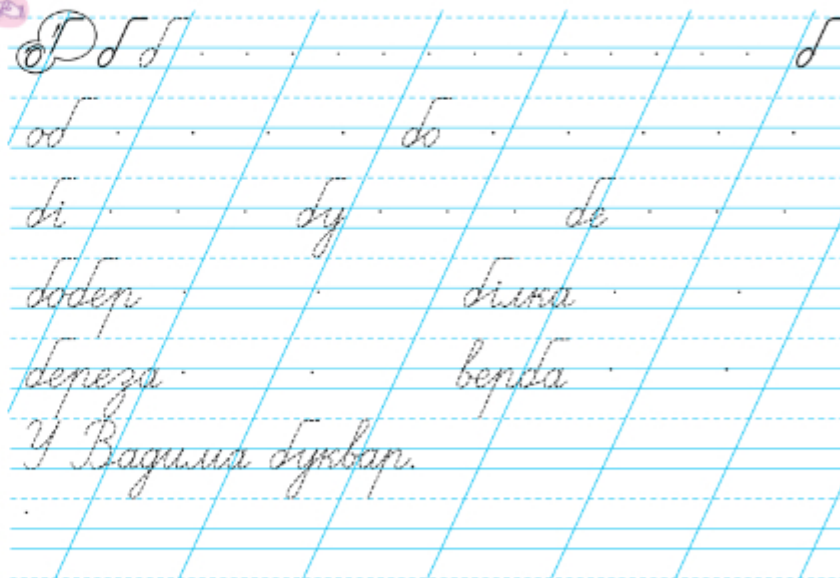 б б б б
об бо
бі бу бе
бобер білка
береза верба
У Вадима буквар.